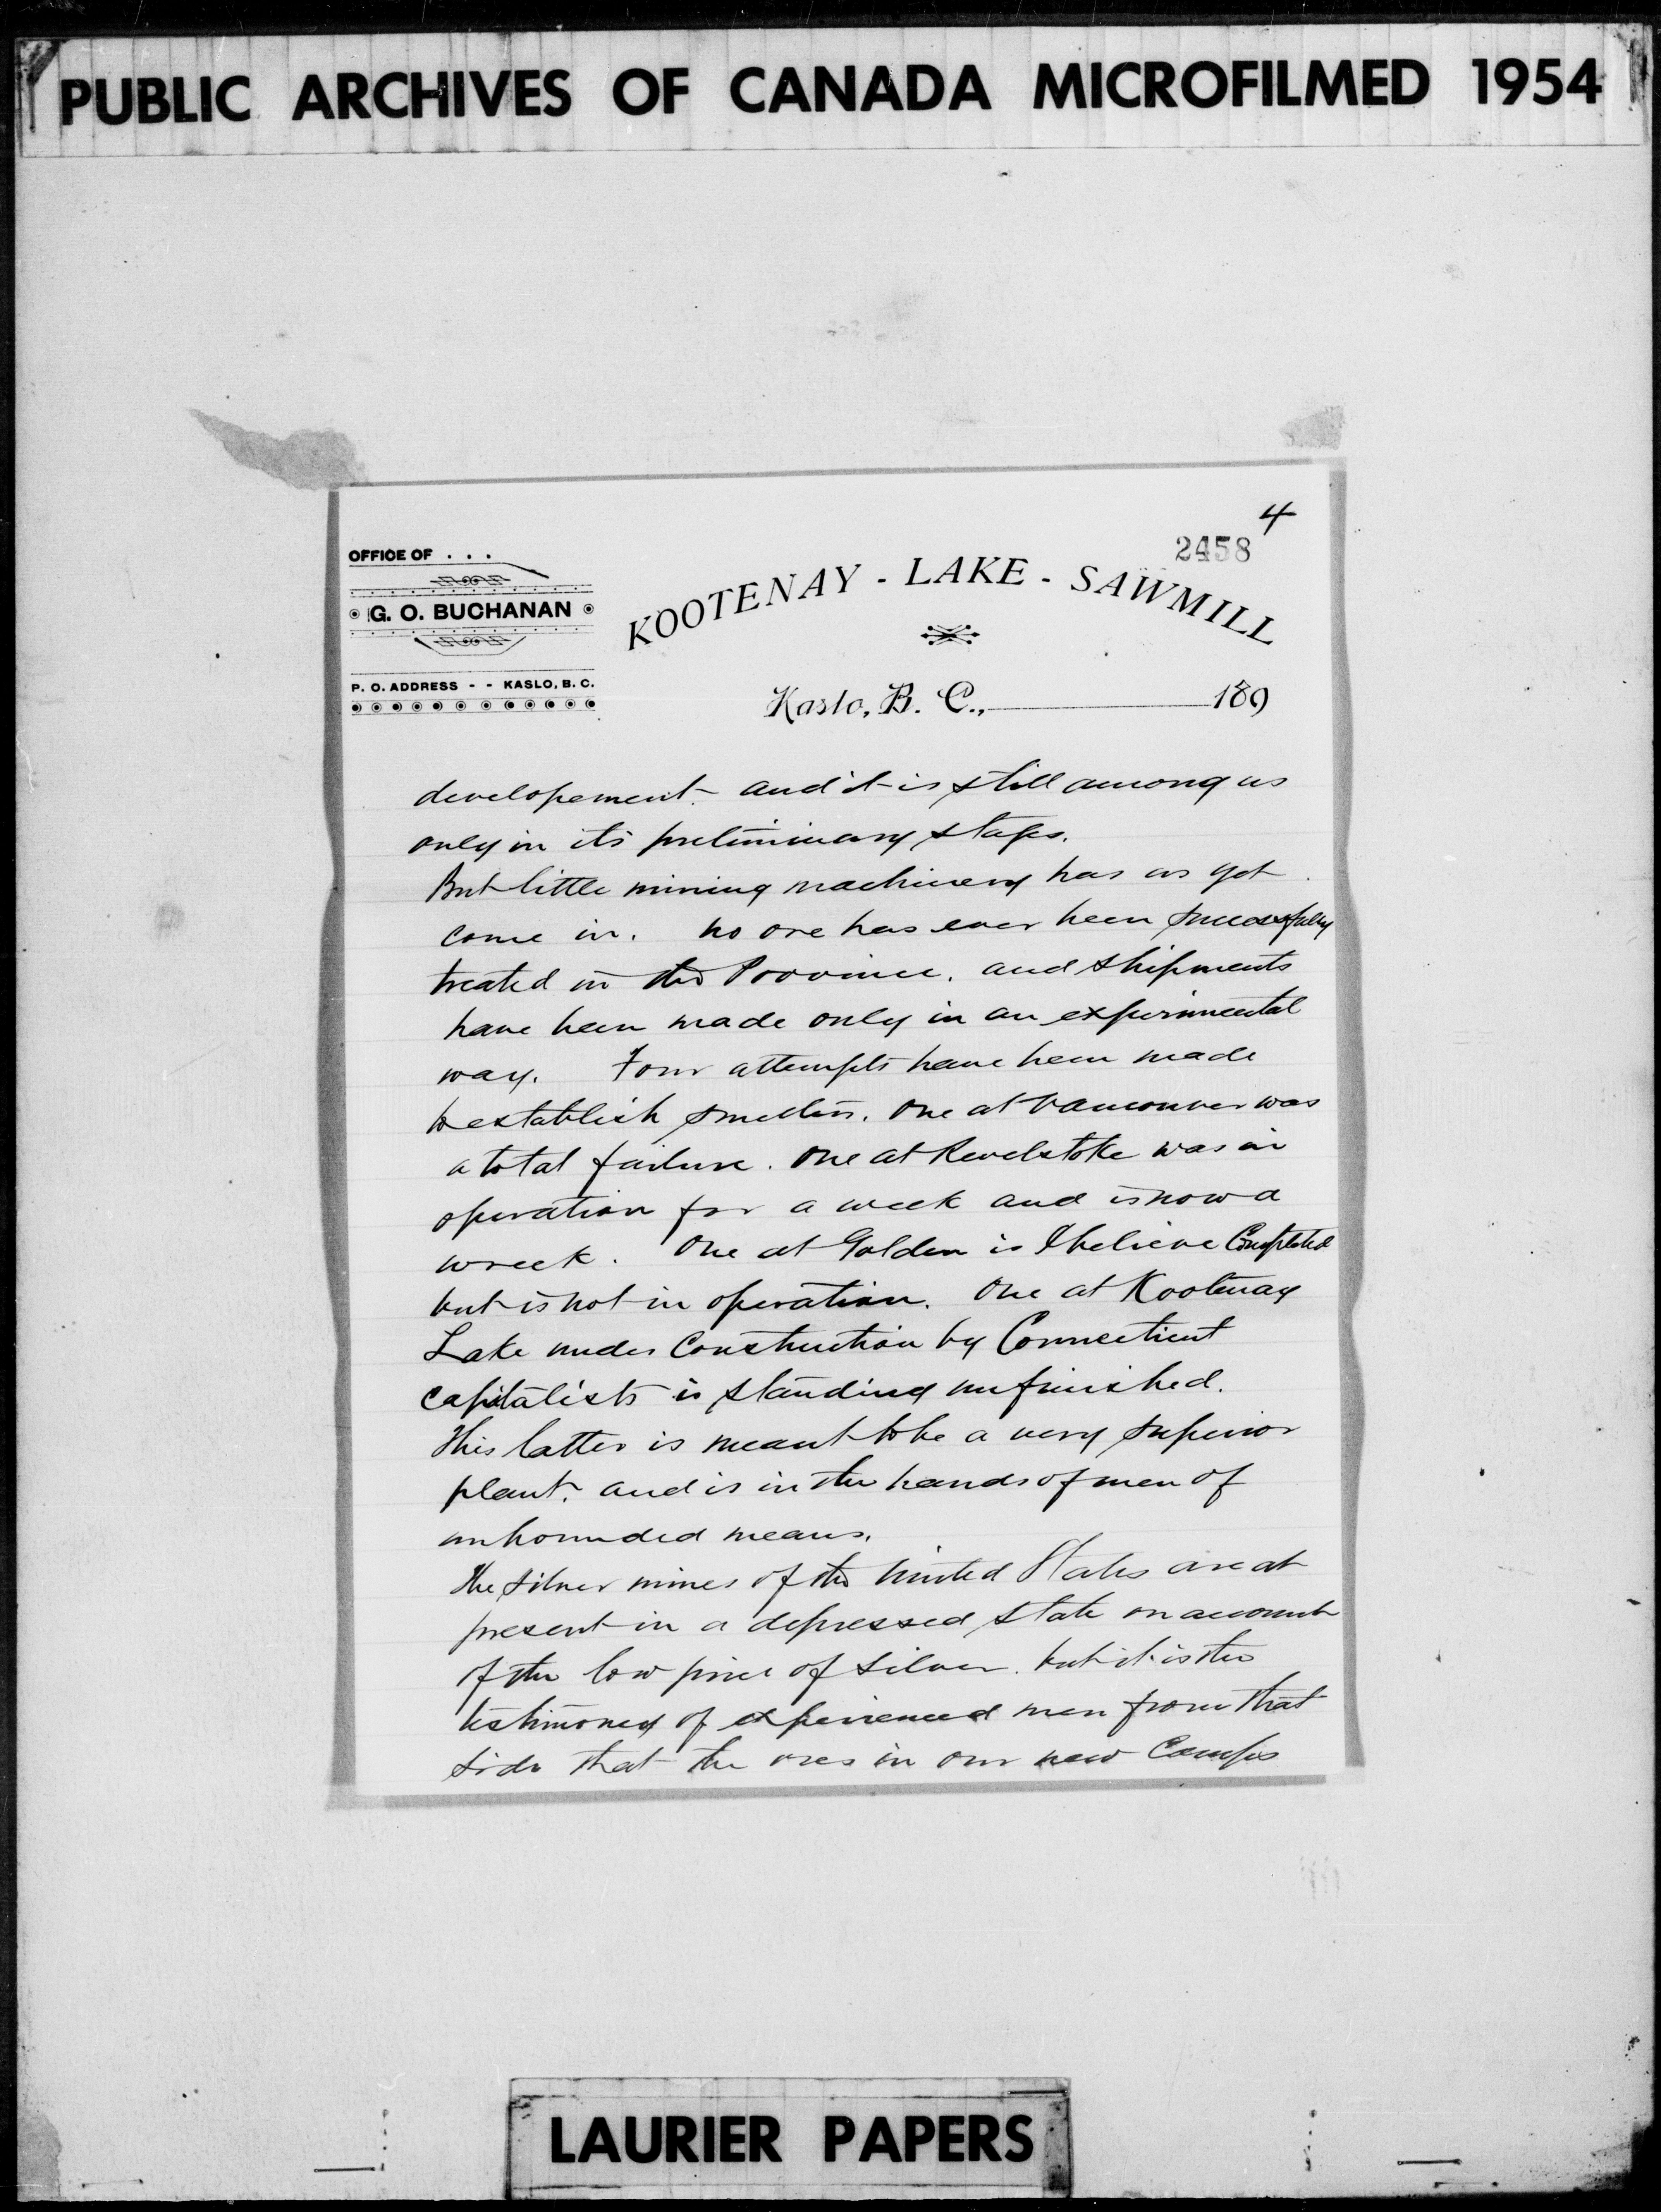 PUBLIC ARCHIVES OF CANADA MICROFILMED 1954
4
2458
OFFICE OF . . .
G. O. BUCHANAN
P. O. ADDRESS - - KASLO, B. C.
KOOTENAY - LAKE - SAWMILL
Kaslo, B. C., 189
developement. and it is still among us
only in its preliminary stages.
But little mining machinery has as yet
come in. No ore has ever been successfully
treated in the Province. and shipments
have been made only in an experimental
way. Four attempts have been made
to establish smelters. One at Vancouver was
a total failure. One at Revelstoke was in
operation for a week and is now a
wreck. One at Golden is I believe Completed
but is not in operation. One at Kootenay
Lake under Construction by Connecticut
capitalists is standing unfinished.
This latter is meant to be a very superior
plant. and is in the hands of men of
unbounded means.
The silver mines of the United States are at
present in a depressed state on account
of the low price of silver. but it is the
testimony of experienced men from that
side that the ores in our new Camps
LAURIER PAPERS